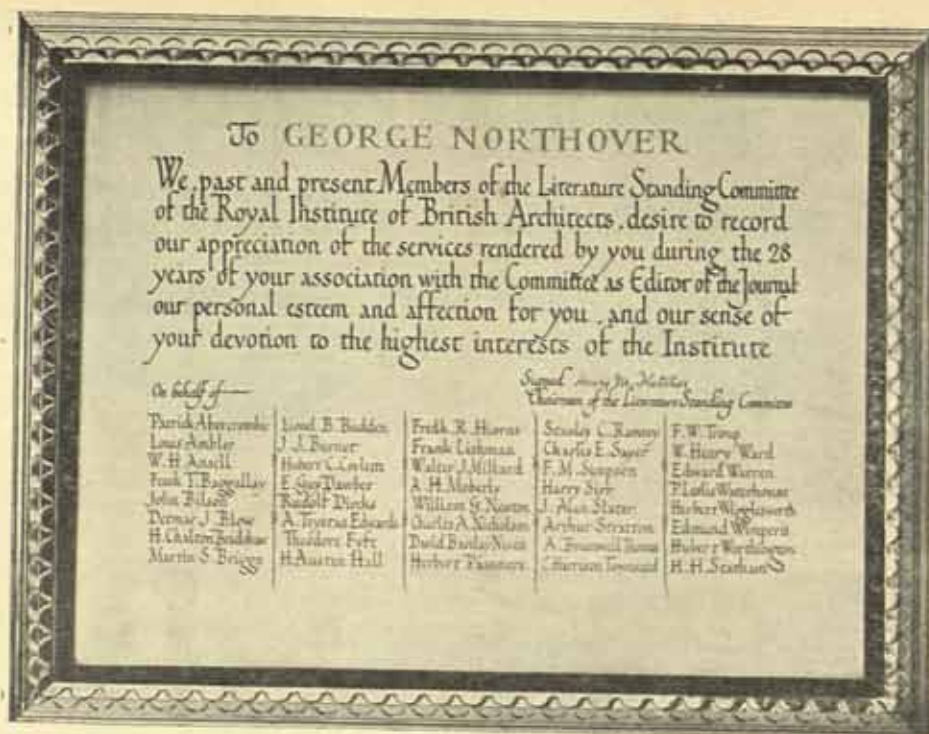 To GEORGE NORTHOVER
We, past and present Members of the Literature Standing Committee
of the Royal Institute of British Architects, desire to record
our appreciation of the services rendered by you during the 28
years of your association with the Committee as Editor of the Journal
our personal esteem and affection for you, and our sense of
your devotion to the highest interests of the Institute
On behalf of
Signed Henry M. Fletcher
Chairman of the Literature Standing Committee
Patrick Abercrombie
Louis Ambler
W. H. Ansell
Frank T. Baggallay
John Bilson
Detmar J. Blow
H. Chalton Bradshaw
Martin S. Briggs
Lionel B. Budden
J. J. Burnet
Hubert C. Corlette
E. Guy Dawber
Rudolf Dircks
A. Trystan Edwards
Theodore Fyfe
H. Austen Hall
Fredk R. Hiorns
Frank Lishman
Walter J. Millard
A. H. Moberly
William G. Newton
Charles A. Nicholson
David Barclay Niven
Herbert Passmore
Stanley C. Ramsey
Charles E. Sayer
F. M. Simpson
Harry Sirr
J. Alan Slater
Arthur Stratton
A. Brumwell Thomas
C. Harrison Townsend
F. W. Troup
W. Henry Ward
Edward Warren
P. Leslie Waterhouse
Herbert Wigglesworth
Edmund Wimperis
Hubert Worthington
H. H. Statham